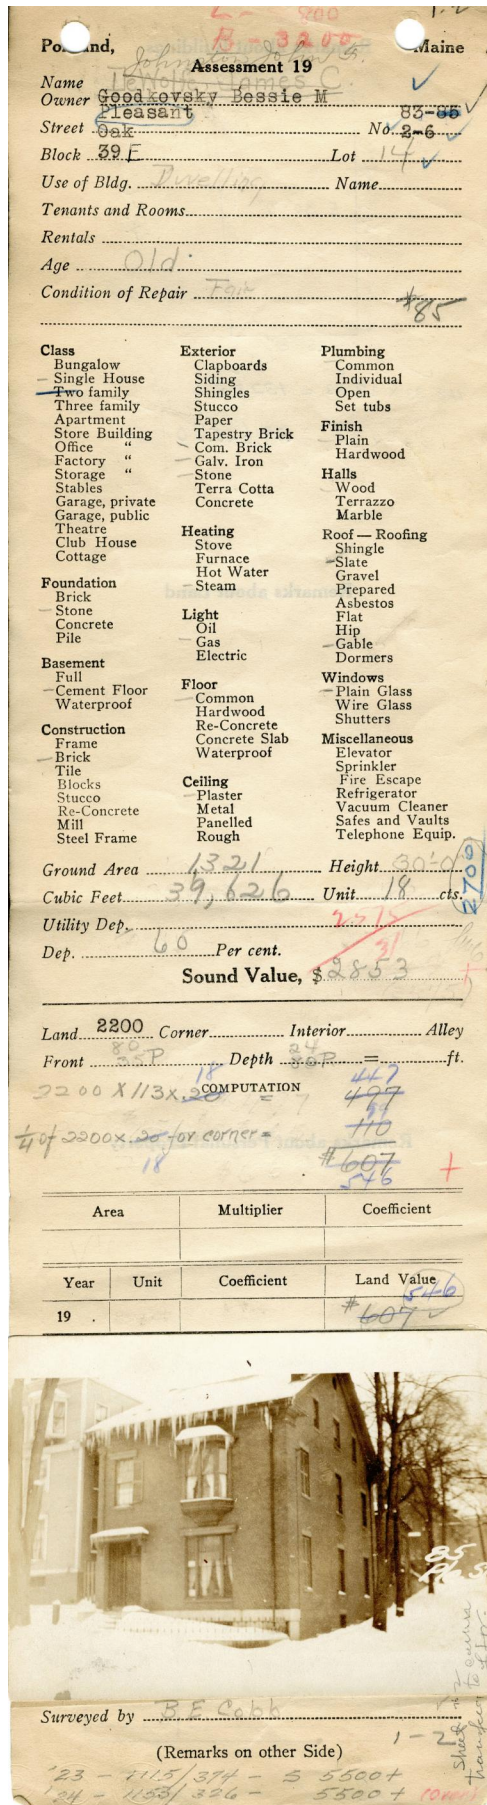 L - 800
B - 3200
1-2
Portland, Maine
Johnston John F.
Assessment 19
Name
DeWolfe James C.
Owner Goodkovsky Bessie M
Pleasant 83-85
Street Oak No. 2-6
Block 39 F Lot 14
Use of Bldg. Dwelling Name
Tenants and Rooms
Rentals
Age Old
Condition of Repair Fair
$85
Class
Bungalow
Single House
Two family
Three family
Apartment
Store Building
Office "
Factory "
Storage "
Stables
Garage, private
Garage, public
Theatre
Club House
Cottage
Foundation
Brick
Stone
Concrete
Pile
Basement
Full
Cement Floor
Waterproof
Construction
Frame
Brick
Tile
Blocks
Stucco
Re-Concrete
Mill
Steel Frame
Exterior
Clapboards
Siding
Shingles
Stucco
Paper
Tapestry Brick
Com. Brick
Galv. Iron
Stone
Terra Cotta
Concrete
Heating
Stove
Furnace
Hot Water
Steam
Light
Oil
Gas
Electric
Floor
Common
Hardwood
Re-Concrete
Concrete Slab
Waterproof
Ceiling
Plaster
Metal
Panelled
Rough
Plumbing
Common
Individual
Open
Set tubs
Finish
Plain
Hardwood
Halls
Wood
Terrazzo
Marble
Roof — Roofing
Shingle
Slate
Gravel
Prepared
Asbestos
Flat
Hip
Gable
Dormers
Windows
Plain Glass
Wire Glass
Shutters
Miscellaneous
Elevator
Sprinkler
Fire Escape
Refrigerator
Vacuum Cleaner
Safes and Vaults
Telephone Equip.
Ground Area 1321 Height 30'-0
Cubic Feet 39,626 Unit 18 cts.
2700
Utility Dep. 2575
Dep. 60 Per cent. 31
Sound Value, $2853
Land 2200 Corner Interior Alley
80 24
Front 25P Depth 80P = ft.
18 447
COMPUTATION
2200 X 113 x .20 = 497
1/4 of 2200 x .20 for corner = 110
18 $607
546
Area Multiplier Coefficient
Year Unit Coefficient Land Value
546
19 $607
85
Pl. St
Surveyed by B E Cobb
(Remarks on other Side)
1-2
'23 - 1115/374 - S 5500+
'24 - 1153/326 - 5500+